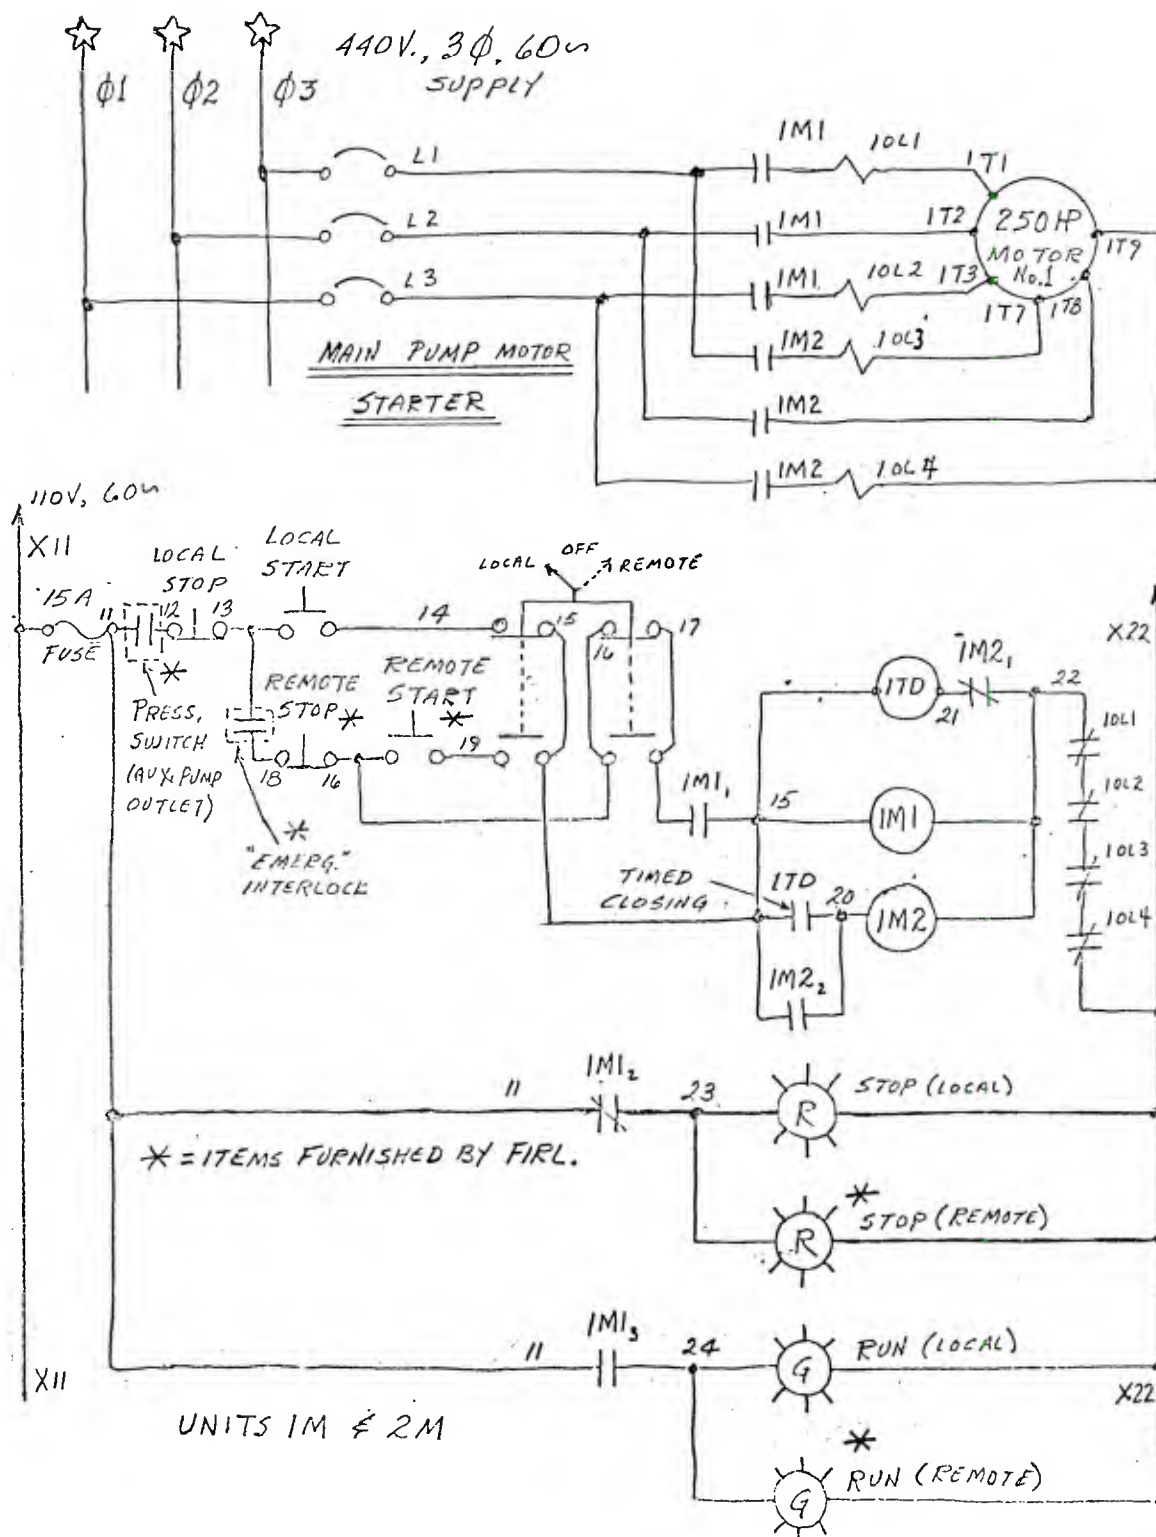 440V., 3Ø, 60~
SUPPLY
Ø1 Ø2 Ø3
L1
L2
L3
1M1 1OL1 1T1
1M1 1T2
1M1 1OL2 1T3
250 HP
MOTOR
No.1
1T9
1T7 1T8
1M2 1OL3
1M2
1M2 1OL4
MAIN PUMP MOTOR
STARTER
110V, 60~
X11
15A
FUSE
11
12
LOCAL
STOP
13
LOCAL
START
14
LOCAL OFF REMOTE
15
16
17
*
PRESS,
SWITCH
(AUX. PUMP
OUTLET)
REMOTE
STOP *
REMOTE
START
*
18
16
19
*
"EMERG."
INTERLOCK
1M1₁
15
1TD
1M2₁
21
22
X22
1OL1
1OL2
1OL3
1OL4
1M1
TIMED
CLOSING
1TD
20
1M2
1M2₂
11
1M1₂
23
R
STOP (LOCAL)
* = ITEMS FURNISHED BY FIRL.
*
R
STOP (REMOTE)
11
1M1₃
24
G
RUN (LOCAL)
X11
X22
UNITS 1M & 2M
*
G
RUN (REMOTE)